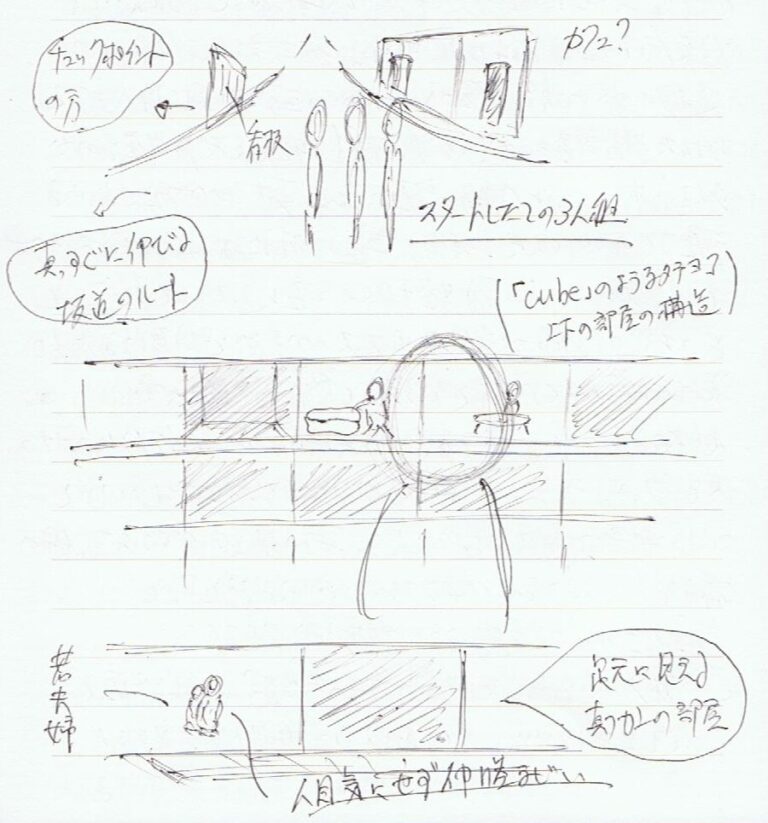 チェックポイント
の方
カフェ?
看板
スタートしたての3人組
真っすぐに伸びる
坂道のルート
「cube」のようなタテヨコ
上下の部屋の構造
若夫婦
足元に見える
真下の部屋
人目気にせず仲睦まじい